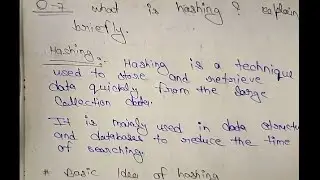 Q-7 what is hashing? explain
briefly.
Hashing :- Hashing is a technique
used to store and retrieve
data quickly from the large
collection data.
It is mainly used in data structu
and databases to reduce the time
of searching.
* Basic Idea of hashing